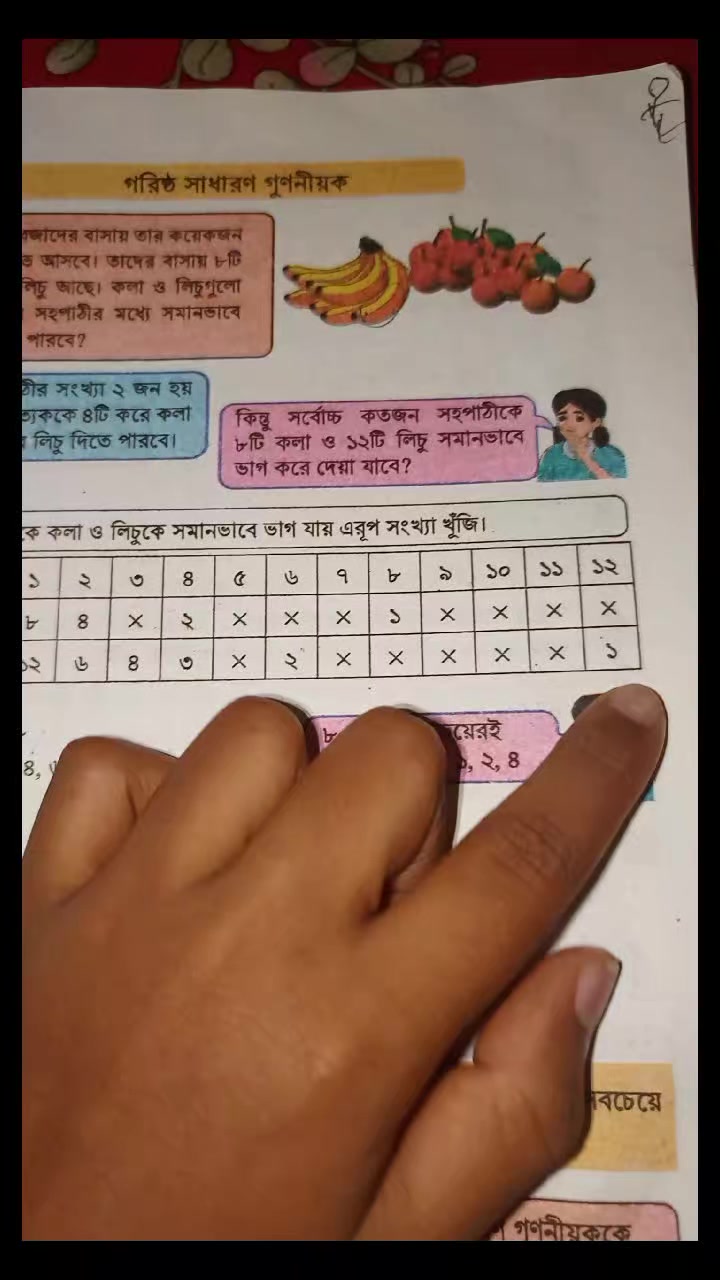 গরিষ্ঠ সাধারণ গুণনীয়ক
বাসায় তার কয়েকজন
আসবে। তাদের বাসায় ৮টি
লিচু আছে। কলা ও লিচুগুলো
সহপাঠীর মধ্যে সমানভাবে
পারবে?
সংখ্যা ২ জন হয়
৪টি করে কলা
লিচু দিতে পারবে।
কিন্তু সর্বোচ্চ কতজন সহপাঠীকে
৮টি কলা ও ১২টি লিচু সমানভাবে
ভাগ করে দেয়া যাবে?
কলা ও লিচুকে সমানভাবে ভাগ যায় এরূপ সংখ্যা খুঁজি।
১ ২ ৩ ৪ ৫ ৬ ৭ ৮ ৯ ১০ ১১ ১২
৮ ৪ × ২ × × × ১ × × × ×
১২ ৬ ৪ ৩ × ২ × × × × × ১
৮
৪,
২, ৪
গুণনীয়ককে